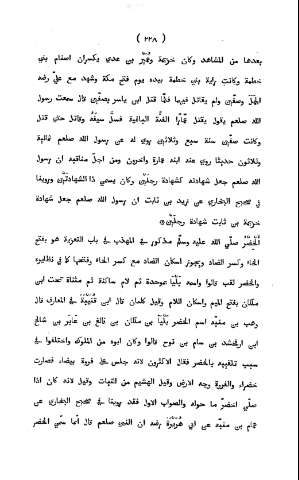 ( ٢٢٨ )
بعدها من المشاهد وكان خزيمة وعُمَيْر بن عدي يكسران اصنام بني
خطمة وكانت راية بني خطمة بيده يوم فتح مكة وشهد مع علي رضه
الجمل وصفّين ولم يقاتل فيها فلمّا قتل ابن ياسر بصفّين قال سمعت رسول
الله صلعم يقول تقتل عمّارًا الفئة الباغية فسلّ سيفه وقاتل حتى قتل
وكانت صفّين سنة سبع وثلاثين روي له عن رسول الله صلعم ثمانية
وثلاثون حديثًا روي عنه ابنه عمارة وآخرون ومن اجلّ مناقبه ان رسول
الله صلعم جعل شهادته كشهادة رجلين وكان يسمي ذا الشهادتَيْن وروينا
في صحيح البخاري عن زيد بن ثابت ان رسول الله صلعم جعل شهادة
خزيمة بن ثابت شهادة رجلين
الخَضِرُ صلّي الله عليه وسلّم مذكور في المهذب في باب التعزية هو بفتح
الخاء وكسر الضاد ويجوز اسكان الضاد مع كسر الخاء وفتحها كما في نظايره
والخضر لقب قالوا واسمه بَلْيَا بموحدة ثم لام ساكنة ثم مثناة تحت ابن
ملكان بفتح الميم واسكان اللام وقيل كلمان قال ابن قُتَيْبَة في المعارف قال
وهب بن منبّه اسم الخضر بَلْيَا بن ملكان بن فالغ بن عابر بن شالخ
ابن ارفخشد بن سام بن نوح قالوا وكان ابوه من الملوك واختلفوا في
سبب تلقيبه بالخضر فقال الاكثرون لانه جلس على فروة بيضاء فصارت
خضراء والفروة وجه الارض وقيل الهشيم من النبات وقيل لانه كان اذا
صلّي اخضرّ ما حوله والصواب الاول فقد روينا في صحيح البخاري عن
همام بن منبّه عن ابي هُرَيْرَة رضه ان النبي صلعم قال انّما سمّي الخضر